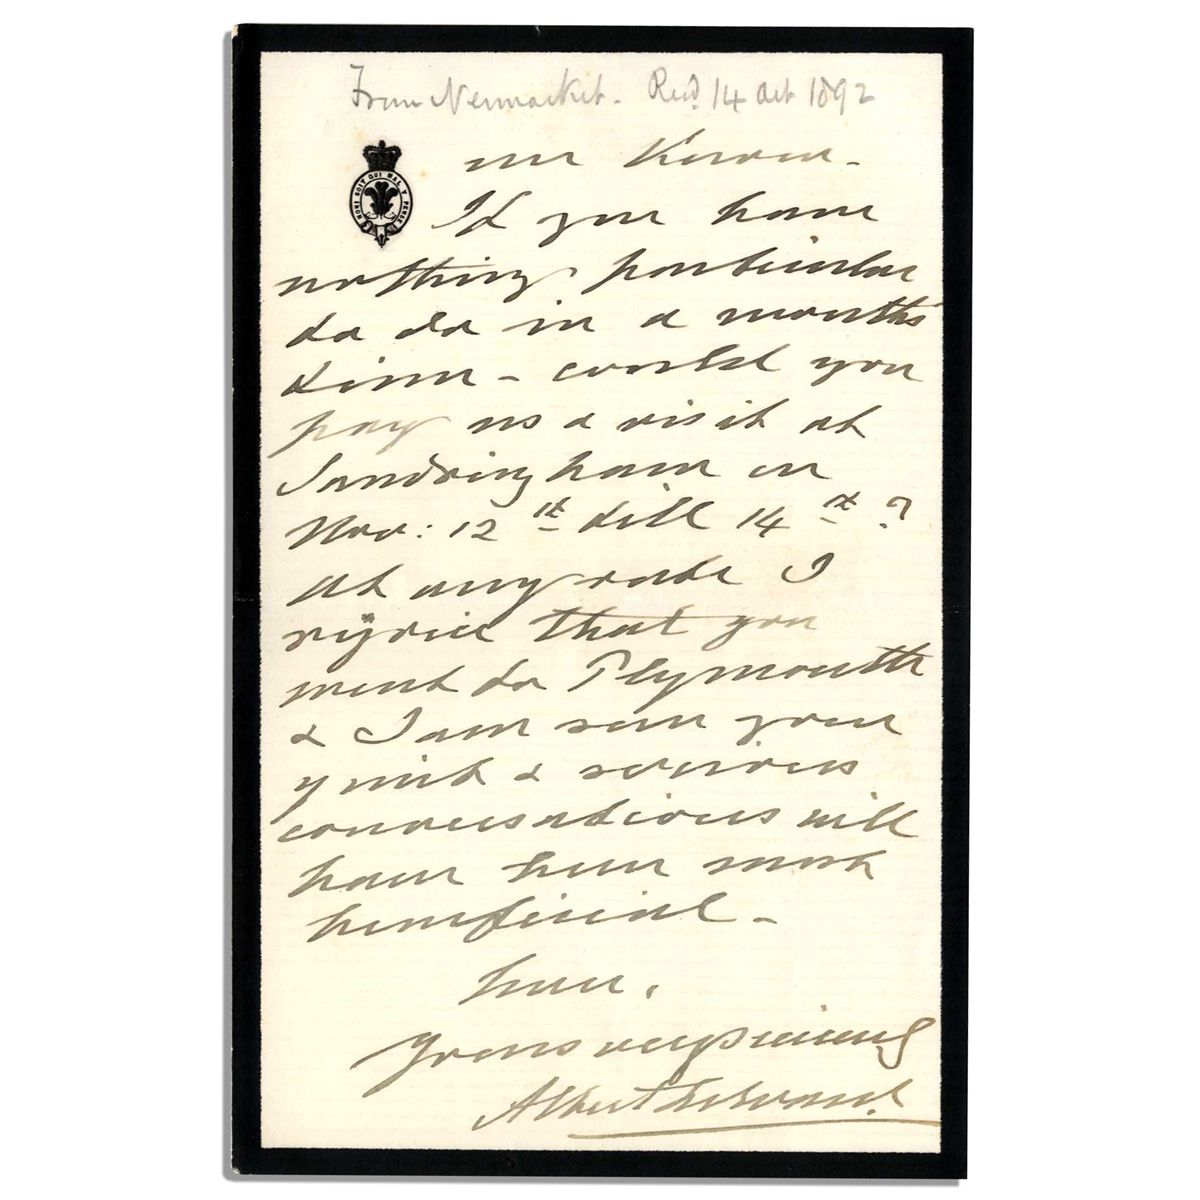 From Newmarket. Recd. 14 Oct 1892
HONI SOIT QUI MAL Y PENSE
If you have
nothing particular
to do in a month's
time - could you
pay us a visit at
Sandringham on
Nov: 12th till 14th?
At any rate I
rejoice that you
went to Plymouth
& I am sure your
visit & serious
conversations will
have been most
beneficial -
here.
Yours very sincerely
Albert Edward.